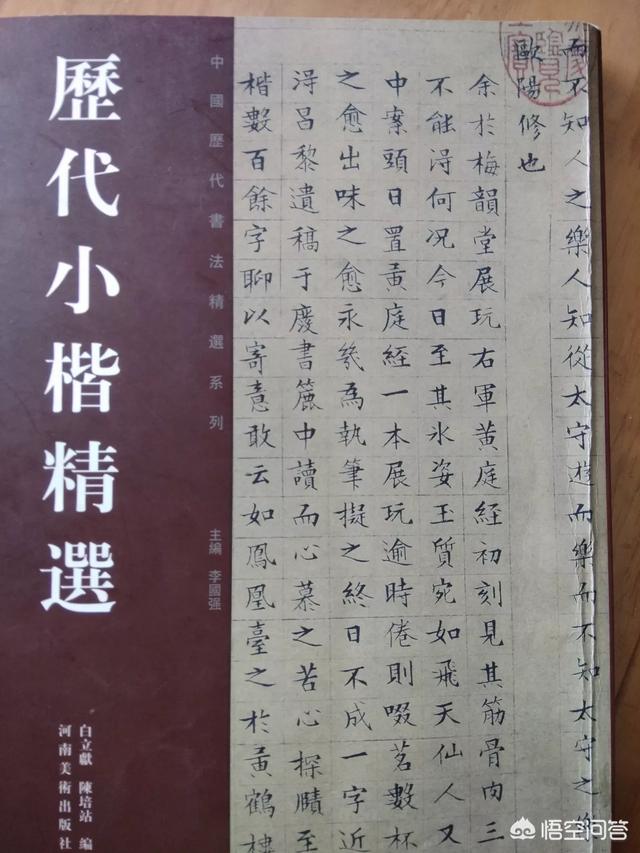 歷代小楷精選
中國歷代書法精選系列
主編 李國强
白立獻 陳培站 編
河南美術出版社
而不知人之樂人知從太守遊而樂而不知太守之樂
歐陽修也
余於梅韻堂展玩右軍黄庭經初刻見其筋骨肉三
不能淂何况今日至其氷姿玉質宛如飛天仙人又
中案頭日置黄庭經一本展玩逾時倦則啜茗數杯
之愈出味之愈永幾為執筆擬之終日不成一字近
淂昌黎遺稿于慶書簏中讀而心慕之苦心探賾至
楷數百餘字聊以寄意敢云如鳳凰臺之於黄鶴樓
悟空问答